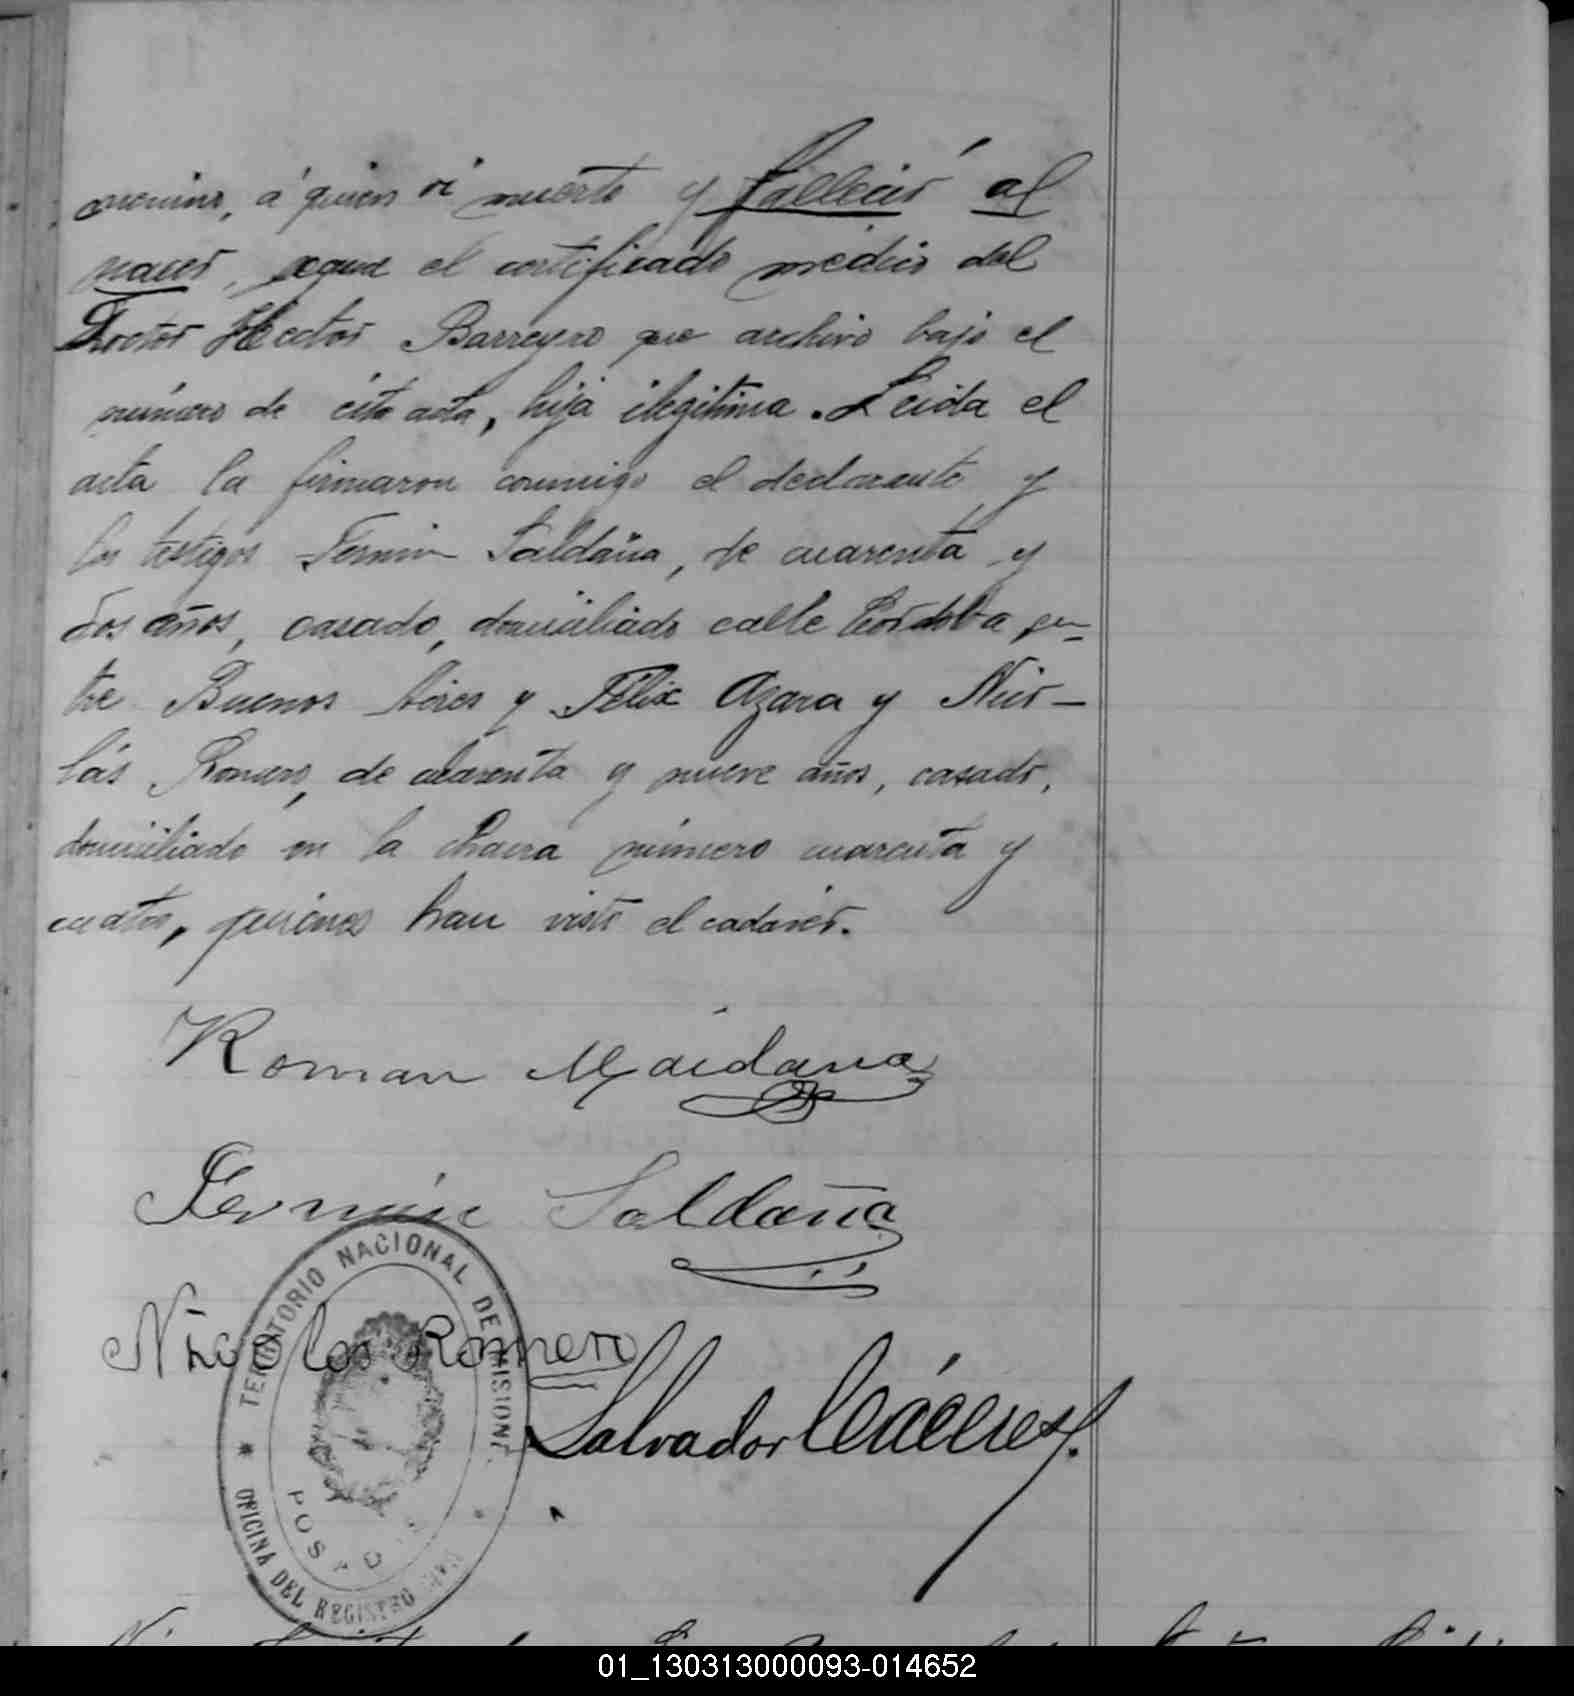 , á quien vi muerto y falleció al
nacer, segun el certificado médico del
Doctor Hector Barreyro que archivo bajo el
número de ésta acta, hija ilegitima. Leida el
acta la firmaron conmigo el declarante y
los testigos Fermin Saldaña, de cuarenta y
dos años, casado, domiciliado calle Córdoba en-
tre Buenos Aires y Félix Azara y Nico-
lás Romero, de cuarenta y nueve años, casado,
domiciliado en la Chacra número cuarenta y
cuatro, quienes han visto el cadáver.
Roman Maidana
Fermín Saldaña
Nicolas Romero
Salvador Cáceres
TERRITORIO NACIONAL DE MISIONE
OFICINA DEL REGISTRO CIVIL
POSAD
01_130313000093-014652